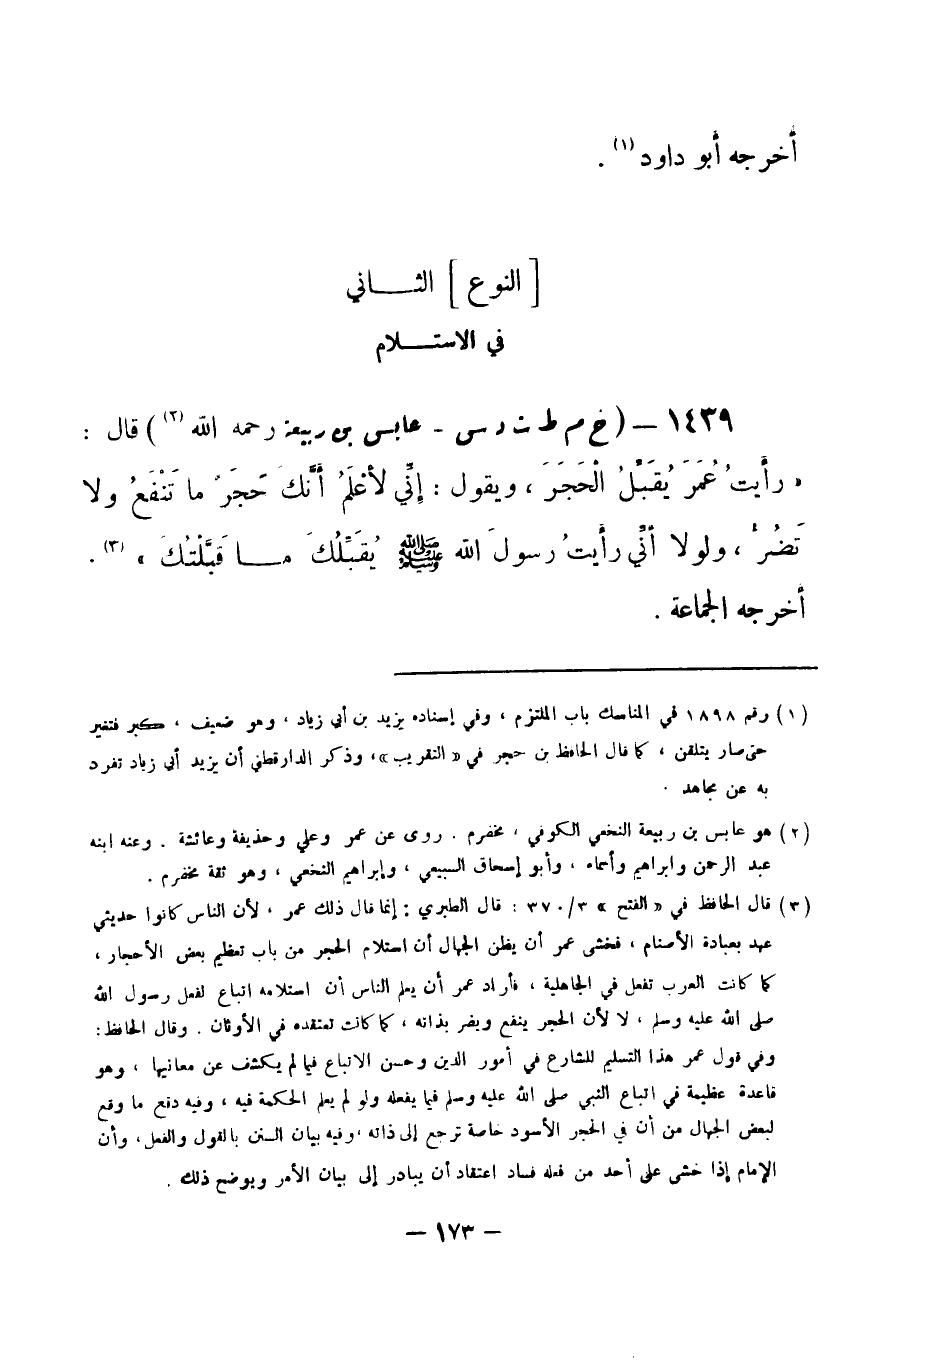 أخرجه أبو داود (١) .
[ النوع ] الثـــاني
في الاستـــلام
١٤٣٩ – ( خ م ط ت د س - عابس بن ربيعة رحمه الله (٢) ) قال :
« رأيتُ عُمَرَ يُقَبِّلُ الْحَجَرَ ، ويقول : إنِّي لأعْلَمُ أنَّكَ حَجَرٌ ما تَنْفَعُ ولا
تَضُرُّ ، ولولا أنِّي رأيتُ رسولَ الله ﷺ يُقَبِّلُكَ مــا قَبَّلْتُكَ » (٣) .
أخرجه الجماعة .
(١) رقم ١٨٩٨ في المناسك باب الملتزم ، وفي إسناده يزيد بن أبي زياد ، وهو ضعيف ، كبر فتغير
حتى صار يتلقن ، كما قال الحافظ بن حجر في « التقريب »، وذكر الدارقطني أن يزيد أبي زياد تفرد
به عن مجاهد .
(٢) هو عابس بن ربيعة النخعي الكوفي ، مخضرم . روى عن عمر وعلي وحذيفة وعائشة . وعنه ابنه
عبد الرحمن وابراهيم وأسماء ، وأبو إسحاق السبيعي ، وإبراهيم النخعي ، وهو ثقة مخضرم .
(٣) قال الحافظ في « الفتح » ٣/٣٧٠ : قال الطبري : إنما قال ذلك عمر ، لأن الناس كانوا حديثي
عهد بعبادة الأصنام ، فخشى عمر أن يظن الجهال أن استلام الحجر من باب تعظيم بعض الأحجار ،
كما كانت العرب تفعل في الجاهلية ، فأراد عمر أن يعلم الناس أن استلامه اتباع لفعل رسول الله
صلى الله عليه وسلم ، لا لأن الحجر ينفع ويضر بذاته ، كما كانت تعتقده في الأوثان . وقال الحافظ :
وفي قول عمر هذا التسليم للشارع في أمور الدين وحسن الاتباع فيما لم يكشف عن معانيها ، وهو
قاعدة عظيمة في اتباع النبي صلى الله عليه وسلم فيما يفعله ولو لم يعلم الحكمة فيه ، وفيه دفع ما وقع
لبعض الجهال من أن في الحجر الأسود خاصة ترجع إلى ذاته ، وفيه بيان السنن بالقول والفعل ، وأن
الإمام إذا خشى على أحد من فعله فساد اعتقاد أن يبادر إلى بيان الأمر ويوضح ذلك .
– ١٧٣ –